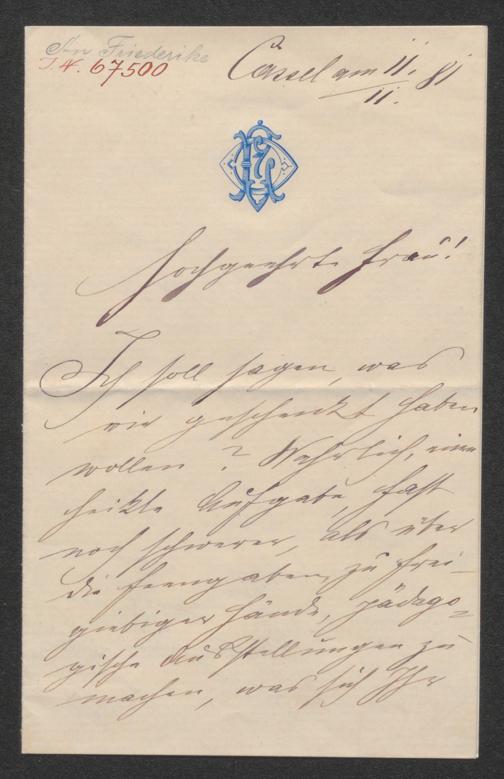 An Friederike
I.N. 67500
Cassel am 11. 81
11.
Hochgeehrte Frau!
Ich soll sagen, was
wir geschenkt haben
wollen? Wahrlich, eine
heikle Aufgabe, fast
noch schwerer, als über
die freigiebiger Hände, pädago-
gische Ausstellungen zu
machen, was sich Ihr